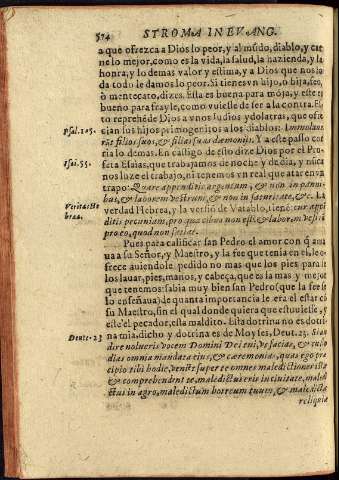 574 STROMA IN EVANG.
a que ofrezca a Dios lo peor, y al mũdo, diablo, y car
ne lo mejor, como es la vida, la salud, la hazienda, y la
honra, y lo demas valor y estima, y a Dios que nos lo
da todo le damos lo peor. Si tienes vn hijo, o hija, feo,
ò mentecato, dizes. Esta es buena para mõja, y este es
bueno para frayle, como vuiesse de ser a la contra. Es
to reprehẽde Dios a vnos Iudios ydolatras, que ofre
Psal. 105. cian los hijos primogenitos a los diablos: Immolaue
runt filios suos, & filias suas dæmonijs. Y a este passo cor
ria lo demas. En castigo de esto dize Dios por el Pro-
Isai. 55. feta Esaias, que trabajamos de noche y de dia, y nũca
nos luze el trabajo, ni tenemos vn real que atar en vn
trapo: Quare appenditis argentum, & non in pani-
bus, & laborem vestrum, & non in saturitate, &c. La
Verita: He
braea. verdad Hebrea, y la versiõ de Vatablo, tiene: cur appẽ
ditis pecuniam, pro qua cibus non est, & laborem vestrũ
pro eo, quod non satiat.
Pues para calificar san Pedro el amor con q̃ ama
ua a su Señor, y Maestro, y la fee que tenia en el, le o-
frece auiendole pedido no mas que los pies para se
los lauar, pies, manos, y cabeça, que es la mas y mejor
que tenemos: sabia muy bien san Pedro (que la fee se
lo enseñaua) de quanta importancia le era el estar cõ
su Maestro, sin el qual donde quiera que estuuiesse, y
este el pecador, esta maldito. Esta dotrina no es dotri
Deut. 23 na mia, dicho y dotrina es de Moyses, Deut. 23. Si au-
dire nolueris vocem Domini Dei tui, vt facias, & custo
dias omnia mandata eius, & cæremonias, quas ego præ
cipio tibi hodie, venient super te omnes maledictiones istæ
& comprehendent te, maledictus eris in ciuitate, maledi
ctus in agro, maledictum horreum tuum, & maledictæ
reliquiæ